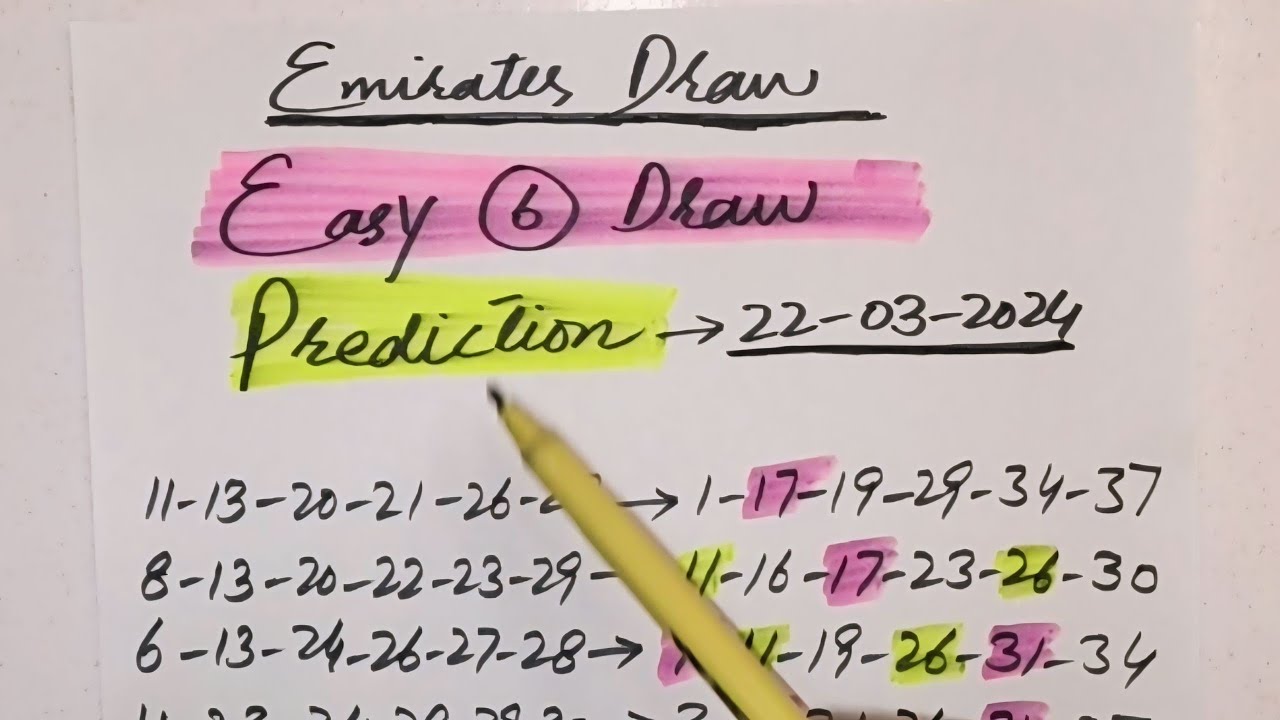 Emirates Draw
Easy 6 Draw
Prediction → 22-03-2024
11-13-20-21-26- → 1-17-19-29-34-37
8-13-20-22-23-29- 11-16-17-23-26-30
6-13-24-26-27-28 → 11-19-26-31-34